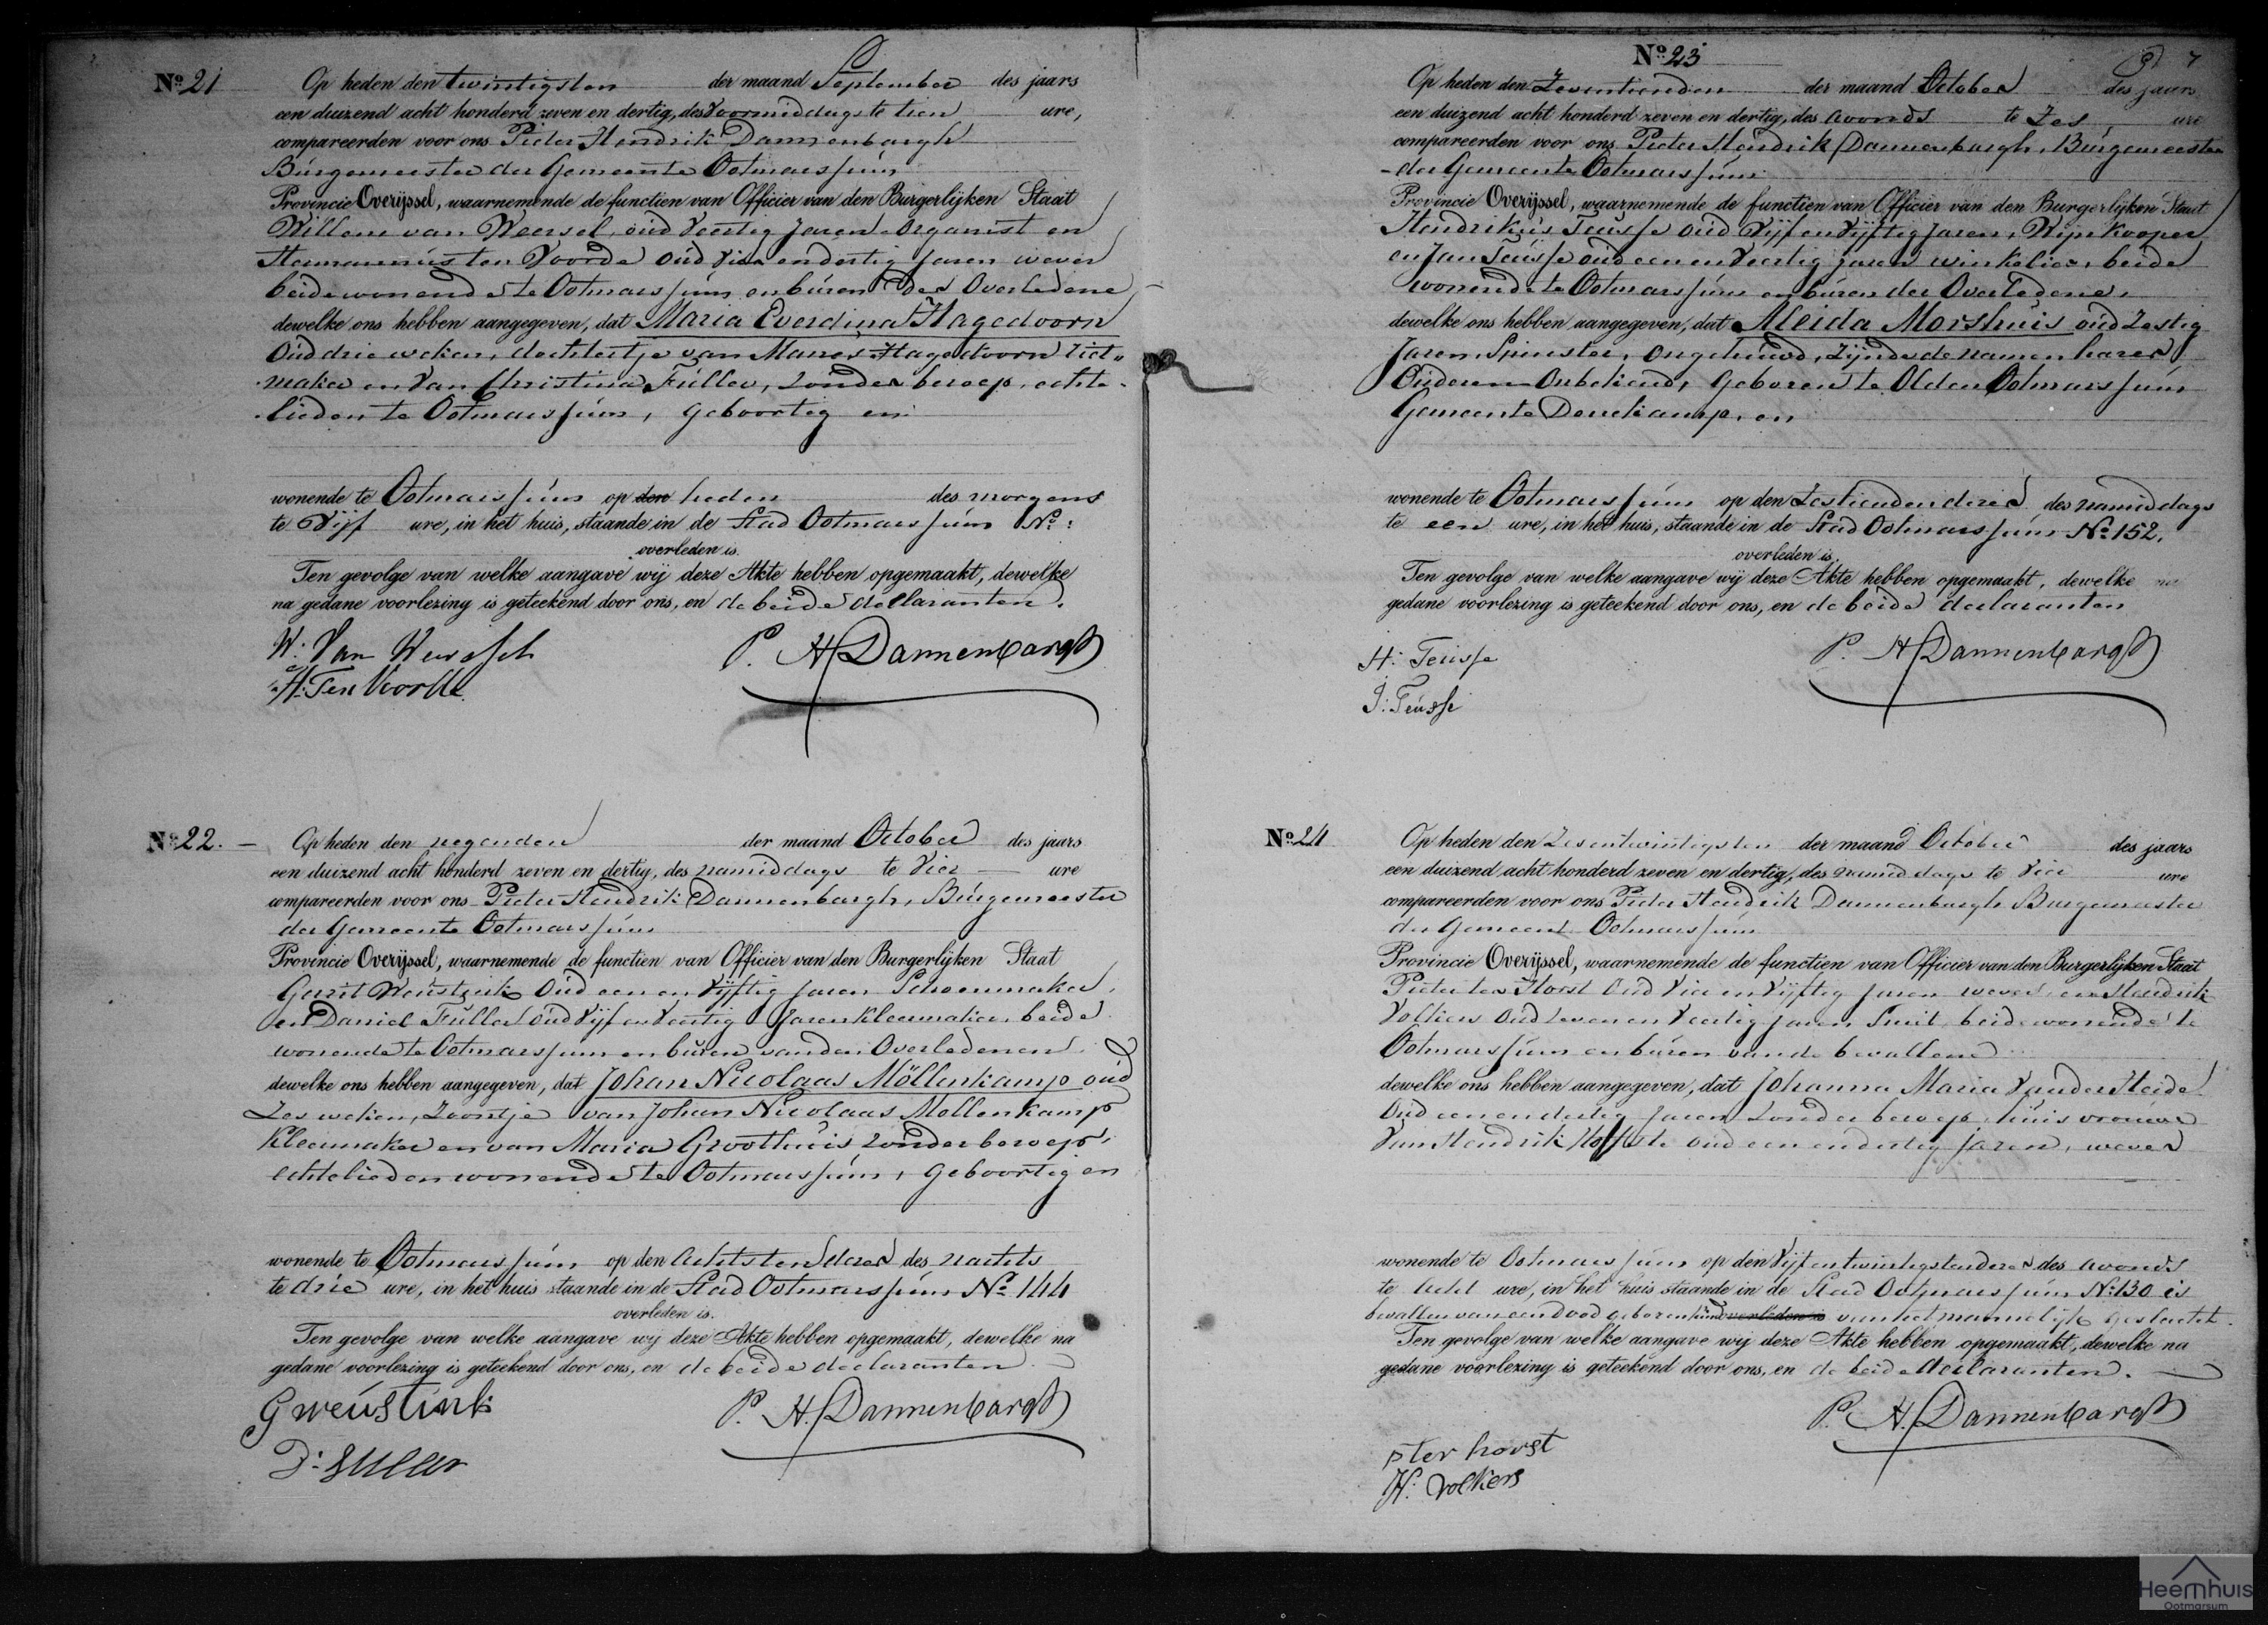 No. 21 Op heden den twintigsten der maand September des jaars
een duizend acht honderd zeven en dertig, des voormiddags te tien ure,
compareerden voor ons Pieter Hendrik Dannenbargh
Burgemeester der Gemeente Ootmarssum
Provincie Overijssel, waarnemende de functien van Officier van den Burgerlijken Staat
Willem van Weersel, oud Veertig Jaren Organist en
Hermannus ten Voorde oud Vier endertig Jaren wever
beide wonende te Ootmarssum en buren der Overledene
dewelke ons hebben aangegeven, dat Maria Everdina Hagedoorn
Oud drie weken, dochtertje van Manes Hagedoorn
maker en van Christina Fuller, zonder beroep, echte-
lieden te Ootmarssum, geboortig en
wonende te Ootmarssum op den heden des morgens
te Vijf ure, in het huis, staande in de Stad Ootmarssum No:
overleden is.
Ten gevolge van welke aangave wij deze Akte hebben opgemaakt, dewelke
na gedane voorlezing is geteekend door ons, en de beide declaranten.
W: Van
H: Ten Voorde
P. H Dannenbargh
No. 22. Op heden den negenden der maand October des jaars
een duizend acht honderd zeven en dertig, des namiddags te Vier ure
compareerden voor ons Pieter Hendrik Dannenbargh, Burgemeester
der Gemeente Ootmarssum
Provincie Overijssel, waarnemende de functien van Officier van den Burgerlijken Staat
Gerrit Weustink Oud een en Vijftig Jaren Schoenmaker,
en Daniel Fuller oud Vijf en Veertig Jaren Kleermaker, beide
wonende te Ootmarssum en buren van den Overledenen
dewelke ons hebben aangegeven, dat Johan Nicolaas Möllenkamp oud
Zes weken, Zoontje van Johan Nicolaas Mollenkamp
Kleermaker en van Maria Groothuis zonder beroep,
echtelieden wonende te Ootmarssum, Geboortig en
wonende te Ootmarssum op den achtsten dezer des nachts
te drie ure, in het huis staande in de Stad Ootmarssum No. 144
overleden is.
Ten gevolge van welke aangave wij deze Akte hebben opgemaakt, dewelke na
gedane voorlezing is geteekend door ons, en de beide declaranten
G weustink
D: Fuller
P. H. Dannenbargh
No. 23
Op heden den Zeventienden der maand October des jaars
een duizend acht honderd zeven en dertig, des avonds te Zes ure
compareerden voor ons Pieter Hendrik Dannenbargh, Burgemeester
der Gemeente Ootmarssum
Provincie Overijssel, waarnemende de functien van Officier van den Burgerlijken Staat
Hendrikus Teusse oud Vijf en Vijftig Jaren, Wijnkooper
en Jan Teusse oud een en Veertig jaren winkelier, beide
wonende te Ootmarssum en buren der Overledene,
dewelke ons hebben aangegeven, dat Aleida Morshuis oud Zestig
Jaren, Spinster, ongehuwd, zijnde de namen harer
Ouderen Onbekend, Geboren te Olden Ootmarssum
Gemeente Denekamp, en
wonende te Ootmarssum op den Zestienden dezer des namiddags
te een ure, in het huis, staande in de Stad Ootmarssum No. 152.
overleden is.
Ten gevolge van welke aangave wij deze Akte hebben opgemaakt, dewelke na
gedane voorlezing is geteekend door ons, en de beide declaranten
H: Teusse
J: Teusse
P. H Dannenbargh
No. 24 Op heden den Zesentwintigsten der maand October des jaars
een duizend acht honderd zeven en dertig, des namiddags te Vier ure
compareerden voor ons Pieter Hendrik Dannenbargh Burgemeester
der Gemeent Ootmarssum
Provincie Overijssel, waarnemende de functien van Officier van den Burgerlijken Staat
Pieter ter Horst Oud Vier en Vijftig Jaren wever, en Hendrik
Volkers oud Zeven en Veertig Jaren Smit beide wonende te
Ootmarssum en buren van de bevallene
dewelke ons hebben aangegeven, dat Johanna Maria Van der Heide
Oud een en dertig Jaren zonder beroep, huisvrouwe
Van Hendrik oud een en dertig Jaren, wever
wonende te Ootmarssum op den Vijfentwintigsten dezer des avonds
te acht ure, in het huis staande in de Stad Ootmarssum No. 130 is
bevallen van een dood geboren kind overleden is van het mannelijk geslacht.
Ten gevolge van welke aangave wij deze Akte hebben opgemaakt, dewelke na
gedane voorlezing is geteekend door ons, en de beide declaranten.
P. H. Dannenbargh
p ter horst
H: Volkers
Heemhuis
Ootmarsum